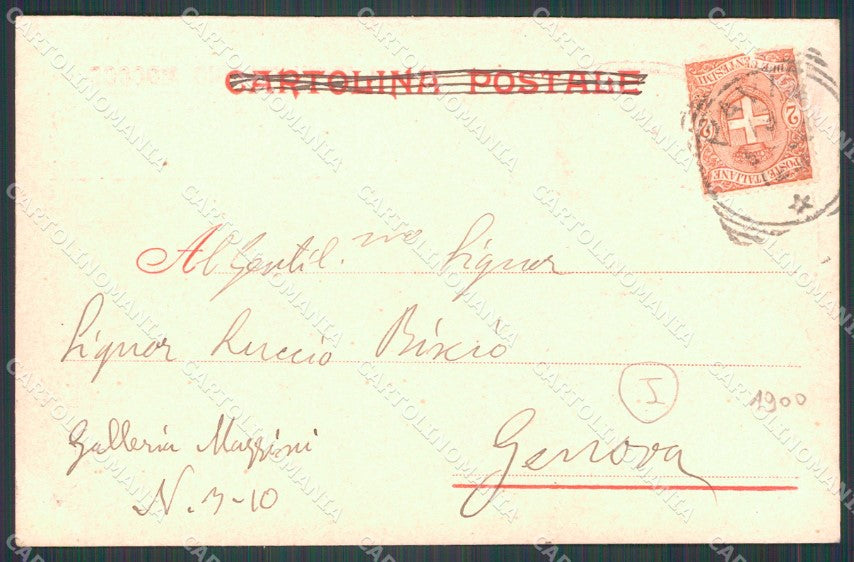 CARTOLINA POSTALE
DUE CENTESIMI
2 2
POSTE ITALIANE
Al Gentil.mo Signor
Signor Ruccio
Galleria Mazzini
N. 3-10
Genova
I
1900
CARTOLINOMANIA